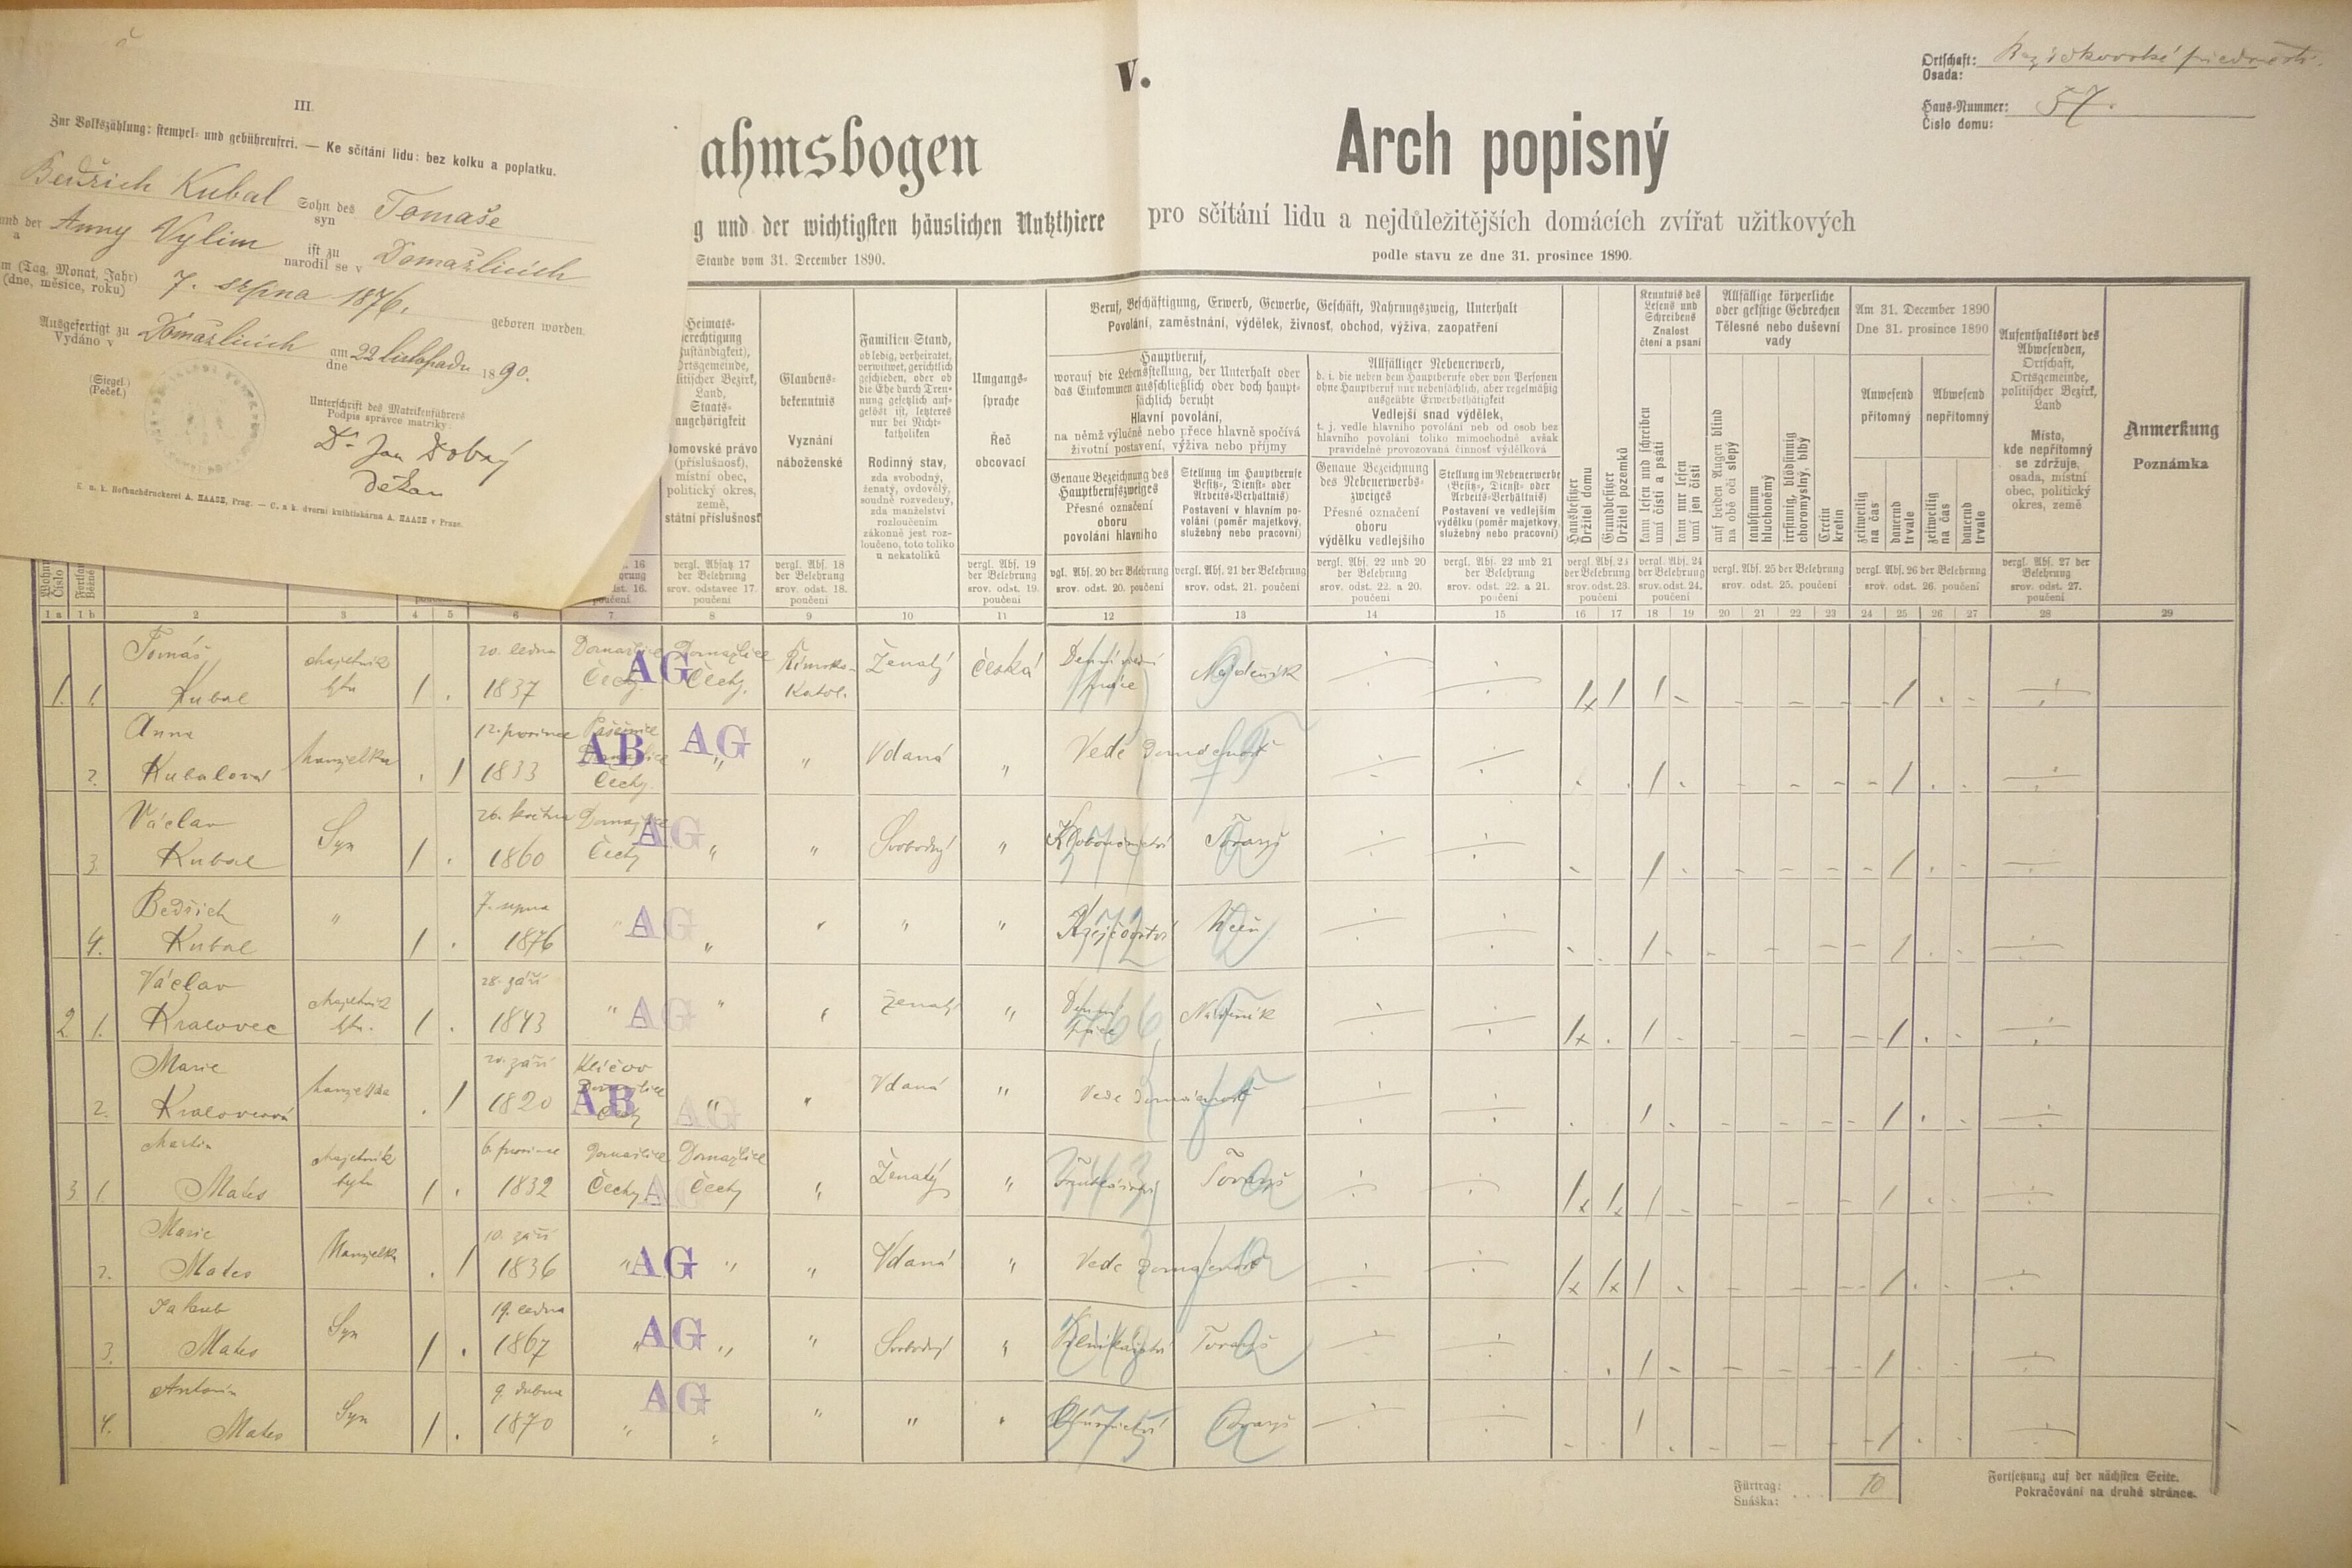 V.
Ortschaft:
Osada:
Haus-Nummer: 57.
Číslo domu:
III.
Zur Volkszählung: stempel- und gebührenfrei. — Ke sčítání lidu: bez kolku a poplatku.
Bedřich Kubal Sohn des syn Tomaše
und der a Anny Vylim ist zu narodil se v Domažlicích
(Tag, Monat, Jahr) (dne, měsíce, roku) 7. srpna 1876. geboren worden.
Ausgefertigt zu Vydáno v Domažlicích am dne 22 listopadu 1890.
(Siegel.)
(Pečeť.)
Unterschrift des Matrikenführers
Podpis správce matriky:
Dr Jan Dobrý
Děkan
K. u. k. Hofbuchdruckerei A. HAASE, Prag. — C. a k. dvorní knihtiskárna A. HAASE v Praze.
ahmsbogen
g und der wichtigsten häuslichen Nutzthiere
Stande vom 31. December 1890.
Arch popisný
pro sčítání lidu a nejdůležitějších domácích zvířat užitkových
podle stavu ze dne 31. prosince 1890.
Heimats-
Land,
Staats-
domovské právo
(příslušnost),
místní obec,
politický okres,
země,
státní příslušnost
Glaubens-
bekenntnis
Vyznání
náboženské
Familien-Stand,
ob ledig, verheiratet,
verwitwet, gerichtlich
geschieden, oder ob
die Ehe durch Tren-
nung gesetzlich auf-
gelöst ist, letzteres
nur bei Nicht-
katholiken
Rodinný stav,
zda svobodný,
ženatý, ovdovělý,
soudně rozvedený,
zda manželství
rozloučením
zákonně jest roz-
loučeno, toto toliko
u nekatolíků
Umgangs-
sprache
Řeč
obcovací
Beruf, Beschäftigung, Erwerb, Gewerbe, Geschäft, Nahrungszweig, Unterhalt
Povolání, zaměstnání, výdělek, živnosť, obchod, výživa, zaopatření
Hauptberuf,
worauf die Lebensstellung, der Unterhalt oder
das Einkommen ausschließlich oder doch haupt-
sächlich beruht
Hlavní povolání,
na němž výlučně nebo přece hlavně spočívá
životní postavení, výživa nebo příjmy
Allfälliger Nebenerwerb,
b. i. die neben dem Hauptberufe oder von Personen
ohne Hauptberuf nur nebensächlich, aber regelmäßig
ausgeübte Erwerbsthätigkeit
Vedlejší snad výdělek,
t. j. vedle hlavního povolání neb od osob bez
hlavního povolání toliko mimochodně avšak
pravidelně provozovaná činnosť výdělková
Genaue Bezeichnung des
Hauptberufszweiges
Přesné označení
oboru
povolání hlavního
Stellung im Hauptberufe
Besitz-, Dienst- oder
Arbeits-Verhältnis)
Postavení v hlavním po-
volání (poměr majetkový,
služebný nebo pracovní)
Genaue Bezeichnung
des Nebenerwerbs-
zweiges
Přesné označení
oboru
výdělku vedlejšího
Stellung im Nebenerwerbe
(Besitz-, Dienst- oder
Arbeits-Verhältnis)
Postavení ve vedlejším
výdělku (poměr majetkový,
služebný nebo pracovní)
Hausbesitzer
Držitel domu
Grundbesitzer
Držitel pozemků
Kenntnis des
Lesens und
Schreibens
Znalost
čtení a psaní
kann lesen und schreiben
umí čísti a psáti
kann nur lesen
umí jen čísti
Allfällige körperliche
oder geistige Gebrechen
Tělesné nebo duševní
vady
auf beiden Augen blind
na obě oči slepý
taubstumm
hluchoněmý
irrsinnig, blödsinnig
choromyslný, blbý
Cretin
kretin
Am 31. December 1890
Dne 31. prosince 1890
Anwesend
přítomný
Abwesend
nepřítomný
zeitweilig
na čas
dauernd
trvale
zeitweilig
na čas
dauernd
trvale
Aufenthaltsort des
Abwesenden,
Ortschaft,
Ortsgemeinde,
politischer Bezirk,
Land
Místo,
kde nepřítomný
se zdržuje,
osada, místní
obec, politický
okres, země
Anmerkung
Poznámka
vergl. Absatz 17
der Belehrung
srov. odstavec 17.
poučení
vergl. Abs. 18
der Belehrung
srov. odst. 18.
poučení
vergl. Abs. 19
der Belehrung
srov. odst. 19.
poučení
vgl. Abs. 20 der Belehrung
srov. odst. 20. poučení
vergl. Abs. 21 der Belehrung
srov. odst. 21. poučení
vergl. Abs. 22 und 20
der Belehrung
srov. odst. 22. a 20.
poučení
vergl. Abs. 22 und 21
der Belehrung
srov. odst. 22. a 21.
poučení
vergl. Abs. 23
der Belehrung
srov. odst. 23.
poučení
vergl. Abs. 24
der Belehrung
srov. odst. 24.
poučení
vergl. Abs. 25 der Belehrung
srov. odst. 25. poučení
vergl. Abs. 26 der Belehrung
srov. odst. 26. poučení
vergl. Abs. 27 der
Belehrung
srov. odst. 27.
poučení
1 a 1 b 2 3 4 5 6 7 8 9 10 11 12 13 14 15 16 17 18 19 20 21 22 23 24 25 26 27 28 29
1. 1. Tomáš Kubal 1 . 20. ledna 1837 Domažlice Čechy AG Domažlice Čechy. Římsko-Katol. Ženatý Česká Nádeník
2. Anna Kubalova manželka . 1 12. prosince 1833 Čechy. AB AG " " Vdaná " Vede domácnost
3. Václav Kubal Syn 1 . 26. května 1860 Čechy AG " " Svobodný " Tovaryš
4. Bedřich Kubal " 1 . 7. srpna 1876 " AG " " " " Krejčovství Učeň
2 1. Václav Kralovec 1 . 28. září 1843 " AG " " ženatý " Nádeník
2. Marie Kralovcová manželka . 1 20. září 1820 Klíčov Domažlice Čechy AB AG " " Vdaná " Vede domácnost
3 1. Martin Mates majetník bytu 1 . 6. prosince 1832 Domažlice Čechy AG Domažlice Čechy " Ženatý " Tovaryš
2. Marie Mates Manželka . 1 10. září 1836 " AG " " Vdaná " Vede domácnost
3. Jakub Mates Syn 1 . 19. ledna 1867 " AG " " Svobodný " Tovaryš
4. Antonín Mates Syn 1 . 9. dubna 1870 " AG " " " " Tovaryš
Fürtrag:
Snáška: . . . 10
Fortsetzung auf der nächsten Seite.
Pokračování na druhé stránce.